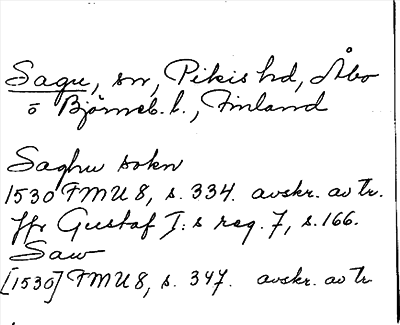 Sagu, sn, Pikis hd, Åbo
o Björneb. l., Finland
Saghu sokn
1530 FMU 8, s. 334. avskr. av tr.
Jfr Gustaf I:s reg. 7, s. 166.
Saw
[1530] FMU 8, s. 347. avskr. av tr.